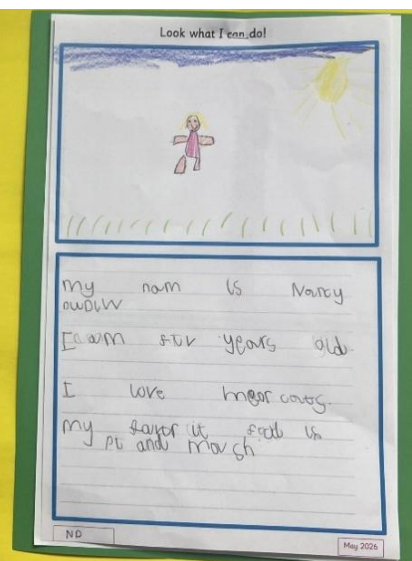 Look what I can do!
my nam is Nancy
I am fiv years old.
I love meer cats.
my favor it food is
pi and mash
ND
May 2026